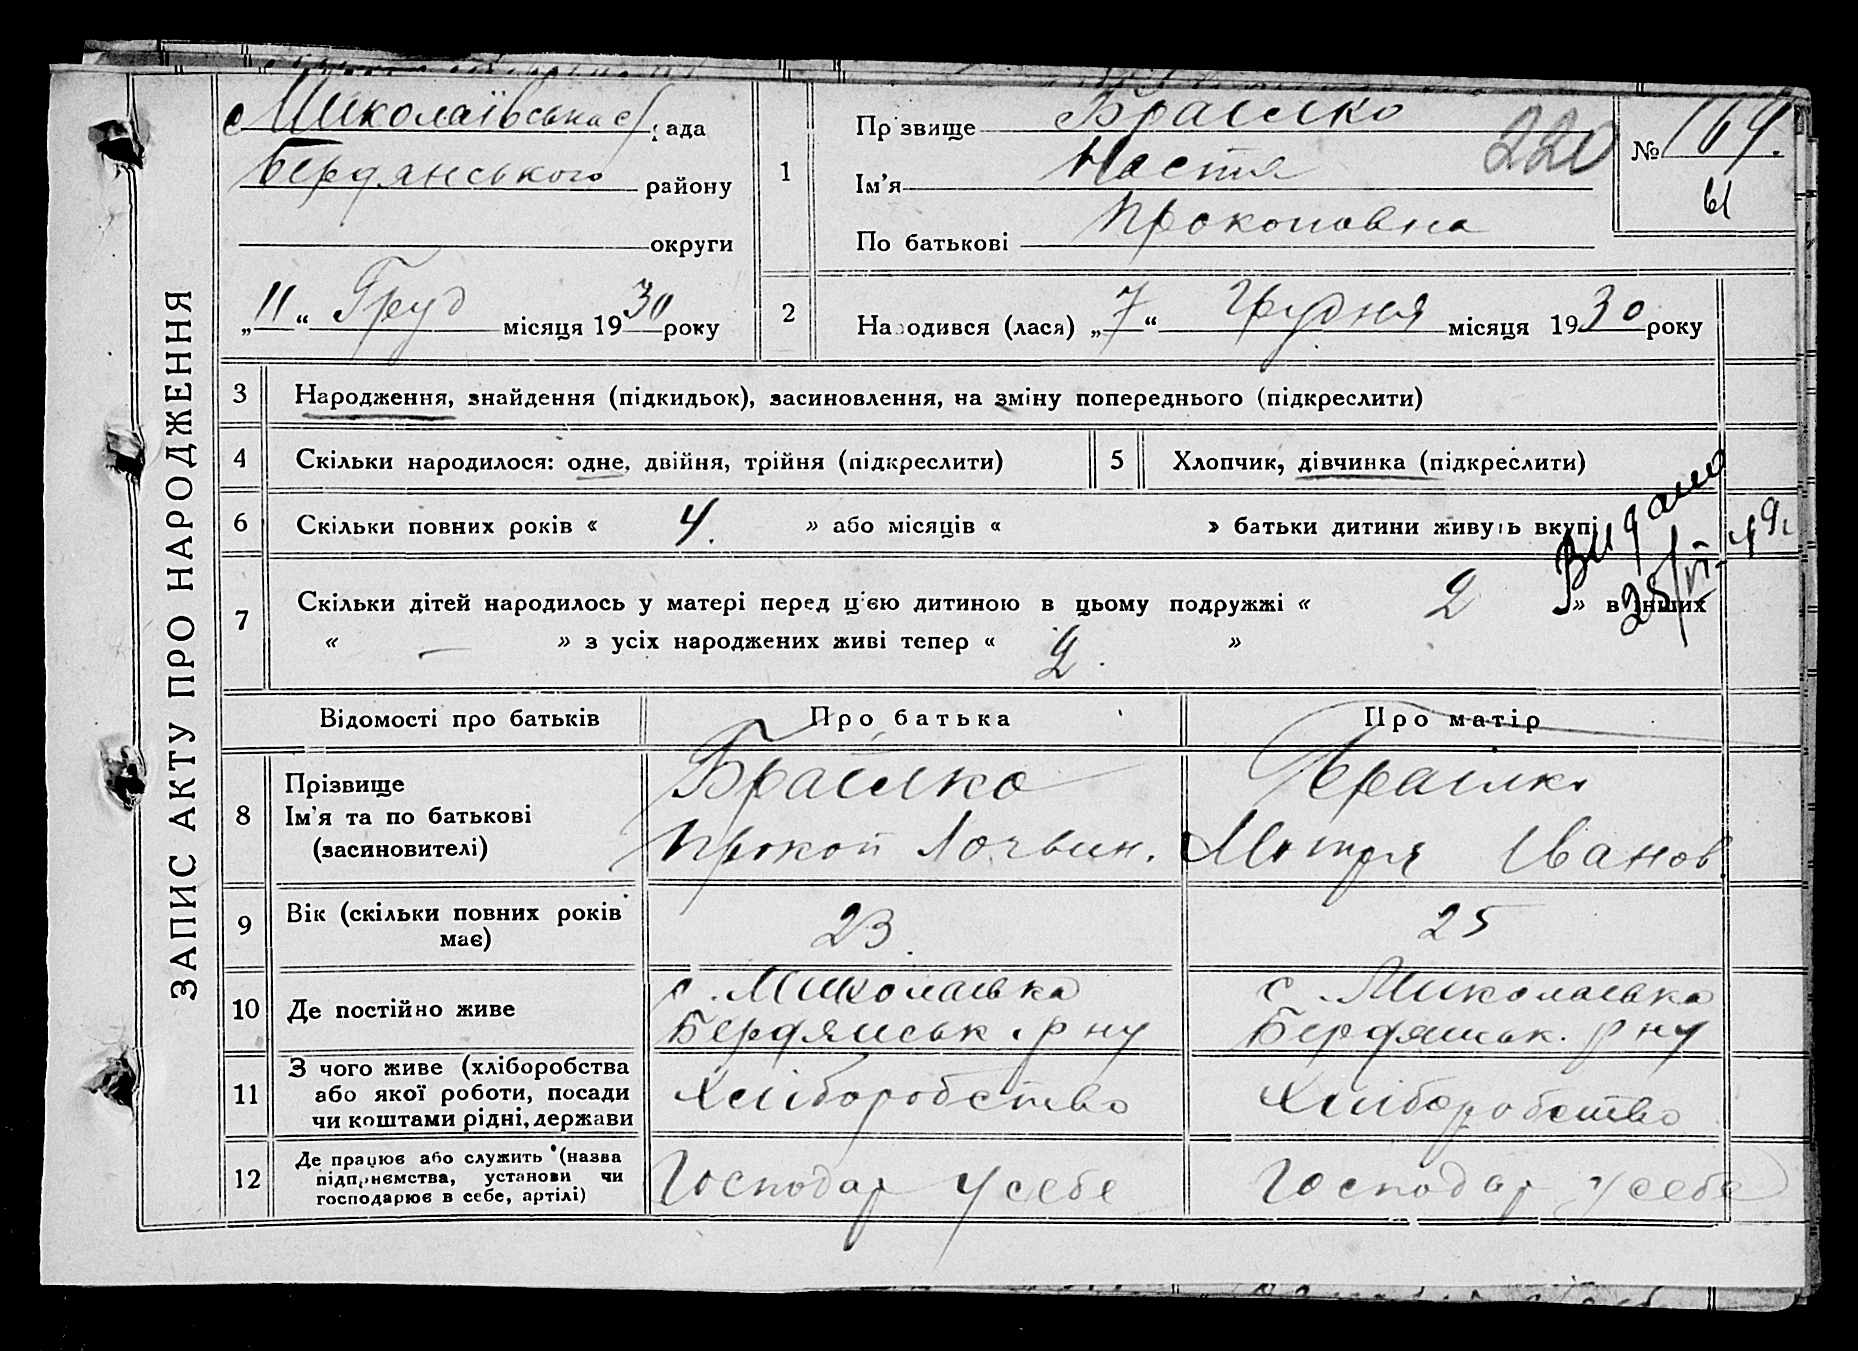 ЗАПИС АКТУ ПРО НАРОДЖЕННЯ
Миколаївська с/рада
Бердянського району
округи
„11“ Груд місяця 1930 року
1
Прізвище Браілко
Ім’я Настя
По батькові Прокоповна
220
№ 164.
2
Народився (лася) „7“ Грудня місяця 1930 року
3 Народження, знайдення (підкидьок), засиновлення, на зміну попереднього (підкреслити)
4 Скільки народилося: одне, двійня, трійня (підкреслити)
5 Хлопчик, дівчинка (підкреслити)
6 Скільки повних років « 4. » або місяців « » батьки дитини живуть вкупі
Видано
25/VI-49г
7 Скільки дітей народилось у матері перед ц'єю дитиною в цьому подружжі « 2 » в інших
« — » з усіх народжених живі тепер « 2. »
Відомості про батьків Про батька Про матір
8 Прізвище
Ім’я та по батькові
(засиновителі)
Браілко
Прокоп Логвин.
Браілко
Мотря Іванов.
9 Вік (скільки повних років
має)
23
25
10 Де постійно живе
с. Миколаівка
Бердянськ. р ну
с. Миколаівка
Бердянськ. р ну
11 З чого живе (хліборобства
або якої роботи, посади
чи коштами рідні, держави
Хліборобство
Хліборобство
12 Де працює або служить (назва
підприємства, установи чи
господарює в себе, артілі)
Господар у себе
Господар у себе